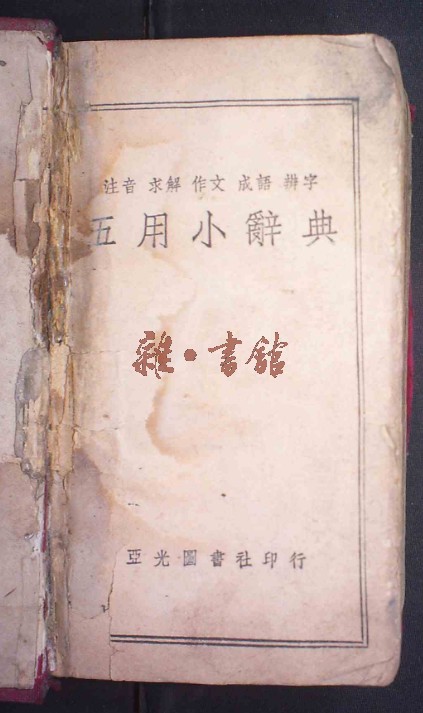 注音 求解 作文 成語 辨字
五用小辭典
雜·書舘
亞光圖書社印行